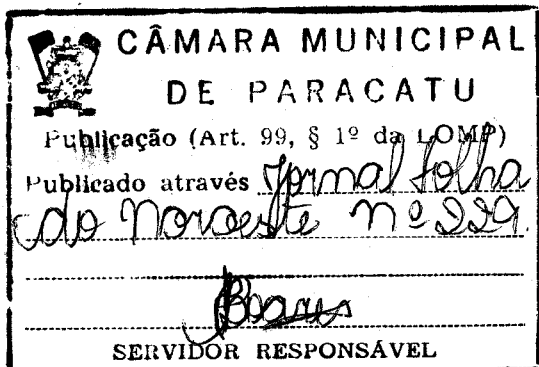 CÂMARA MUNICIPAL
DE PARACATU
Publicação (Art. 99, § 1º da LOMP)
Publicado através Jornal folha
do Noroeste nº 229.
SERVIDOR RESPONSÁVEL